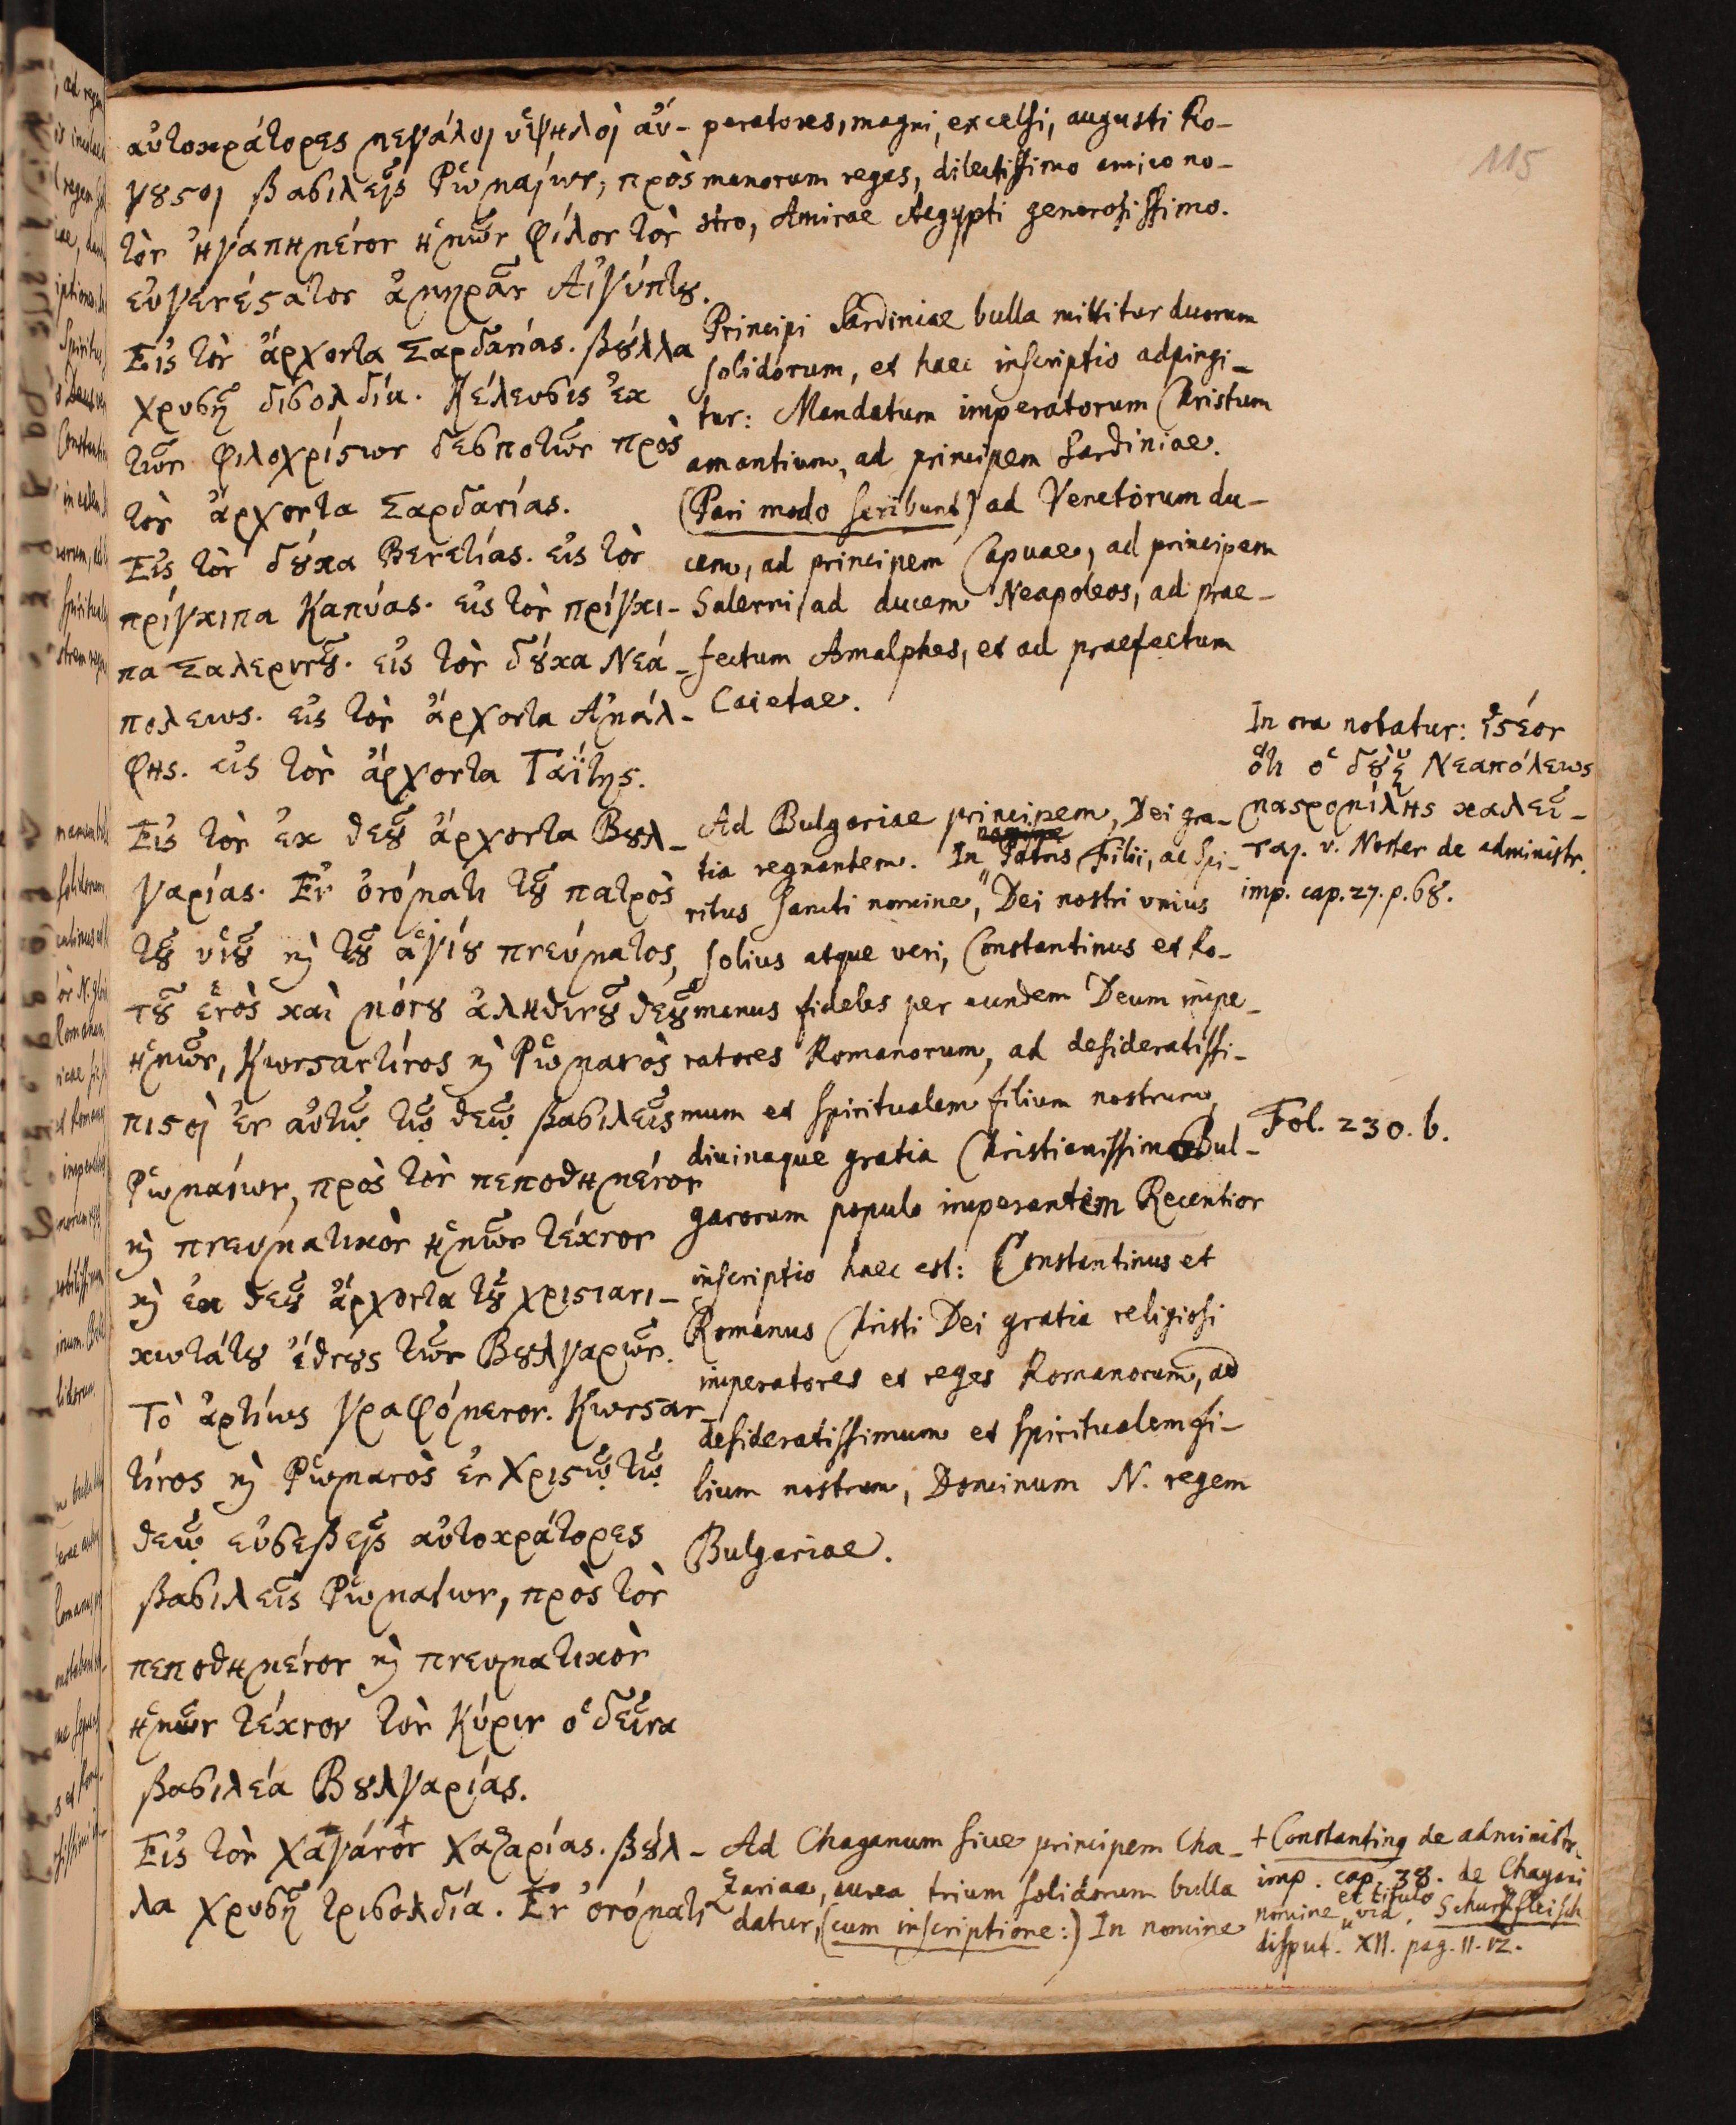 115
αὐτοκράτορες μεγάλοι ὑψηλοὶ αὔ-
γȣϛοι βασιλεῖς Ῥωμαίων, πρὸς
τὸν ἠγαπημένον ἡμῶν φίλον τὸν
εὐγενέϛατον ἀμηρᾶν Αἰγύπτȣ.
Εἰς τὸν ἄρχοντα Σαρδανίας. βȣ́λλα
χρυσῆ δισολδία. Κέλευσις ἐκ
τῶν φιλοχρίϛων δεσποτῶν πρὸς
τὸν ἄρχοντα Σαρδανίας.
Εἰς τὸν δȣ́κα Βενετίας. εἰς τὸν
πρίγκιπα Καπύας. εἰς τὸν πρίγκι-
πα Σαλερνȣ͂. εἰς τὸν δȣ́κα Νεά-
πολεως. εἰς τὸν ἄρχοντα Ἀμάλ-
φης. εἰς τὸν ἄρχοντα Γαΐτης.
Εἰς τὸν ἐκ θεȣ͂ ἄρχοντα Βȣλ-
γαρίας. Ἐν ὀνόματι τȣ͂ πατρὸς
τȣ͂ υἱȣ͂ ϗ τȣ͂ ἁγίȣ πνεύματος,
τȣ͂ ἑνὸς καὶ μόνȣ ἀληθινȣ͂ θεȣ͂
ἡμῶν, Κωνϛαντίνος ϗ Ῥωμανὸς
πιϛοὶ ἐν αὐτῷ τῷ θεῷ βασιλεῖς
Ῥωμαίων, πρὸς τὸν πεποθημένον
ϗ πνευματικὸν ἡμῶν τέκνον
ϗ ἐκ θεȣ͂ ἄρχοντα τȣ͂ χριϛιανι-
κωτάτȣ ἔθνȣς τῶν Βȣλγαρῶν.
Τὸ ἀρτίως γραφόμενον. Κωνϛαν-
τίνος ϗ Ῥωμανὸς ἐν Χριϛῷ τῷ
θεῷ εὐσεβεῖς αὐτοκράτορες
βασιλεῖς Ῥωμαίων, πρὸς τὸν
πεποθημένον ϗ πνευματικὸν
ἡμῶν τέκνον τὸν Κύριν ὁ δεῖνα
βασιλέα Βȣλγαρίας.
Εἰς τὸν χαγάνον + Χαζαρίας. βȣ́λ-
λα χρυσῆ τρισολδία. Ἐν ὀνόματι
peratores, magni, excelsi, augusti Ro-
manorum reges, dilectissimo amico no-
stro, Amirae Aegypti generosissimo.
Principi Sardiniae bulla mittitur duorum
solidorum, et haec inscriptio adpingi-
tur: Mandatum imperatorum Christum
amantium, ad principem Sardiniae.
(Pari modo scribunt) ad Venetorum du-
cem, ad principem Capuae, ad principem
Salerni, ad ducem Neapoleos, ad prae-
fectum Amalphes, et ad praefectum
Caietae.
Ad Bulgariae principem, Dei gra-
tia regnantem. In Patris Filii, ac Spi-
ritus Sancti nomine, Dei nostri unius
solius atque veri, Constantinus et Ro-
manus fideles per eundem Deum impe-
ratores Romanorum, ad desideratissi-
mum et spiritualem filium nostrum,
divinaque gratia Christianissimo Bul-
garorum populo imperantem Recentior
inscriptio haec est: Constantinus et
Romanus Christi Dei gratia religiosi
imperatores et reges Romanorum, ad
desideratissimum et spiritualem fi-
lium nostrum, Dominum N. regem
Bulgariae.
Ad Chaganum sive principem Cha-
zariae, aurea trium solidorum bulla
datur, (cum inscriptione:) In nomine
In ora notatur: ἰϛέον
ὅτι ὁ δοὺξ Νεαπόλεως
μαϛρομίλης καλεῖ-
ται. v. Noster de administr.
imp. cap. 27. p. 68.
Fol. 230. b.
+ Constantinq de administr.
imp. cap. 38. de Chagani
nomine et titulo vid. Schurzfleisch
disput. XII. pag. 11. 12.